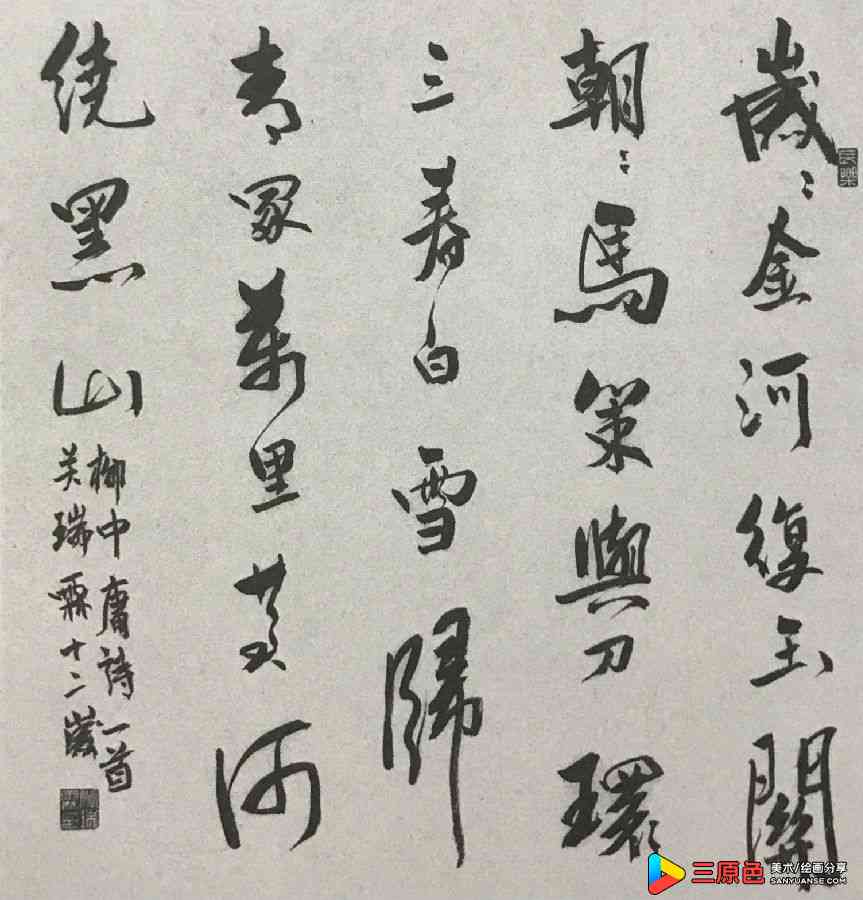 歲〻金河復玉關
朝〻馬策與刀環
三春白雪歸
青冢萬里黃河
繞黑山
柳中庸詩一首
瑞霖十二歲
長樂
三原色
美术/绘画分享
SANYUANSE.COM